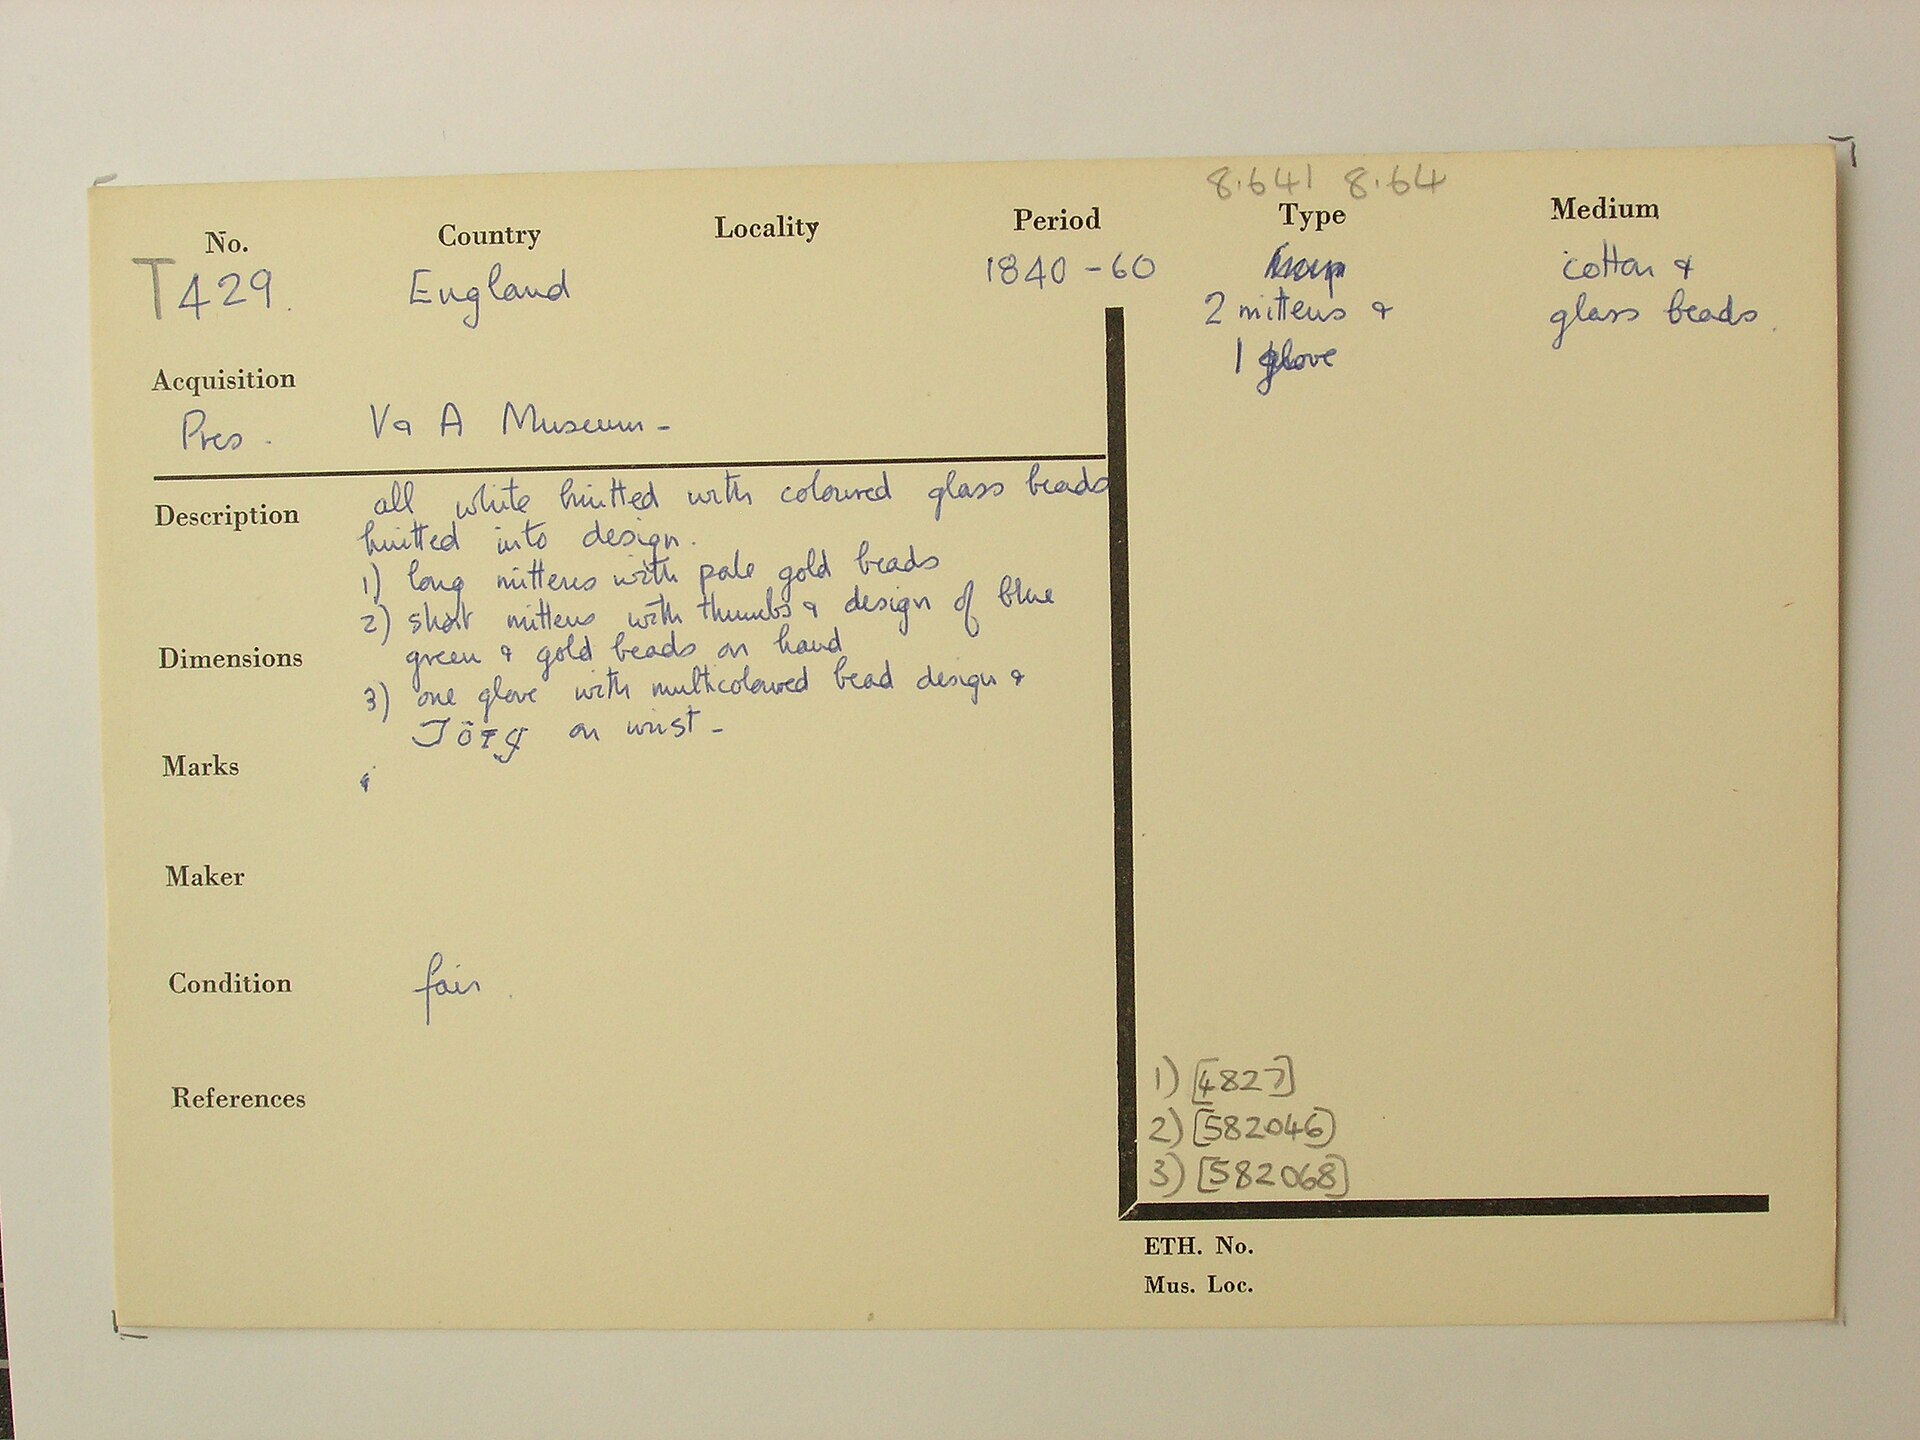 8.641 8.64
No. Country Locality Period Type Medium
T429. England 1840-60 cotton &
2 mittens & glass beads.
1 glove
Acquisition
Pres. V & A Museum -
Description all white knitted with coloured glass beads
knitted into design.
1) long mittens with pale gold beads
2) short mittens with thumbs & design of blue
green & gold beads on hand
Dimensions
3) one glove with multicoloured bead design &
on wrist -
Marks
Maker
Condition fair.
References
1) [4827]
2) [582046]
3) [582068]
ETH. No.
Mus. Loc.